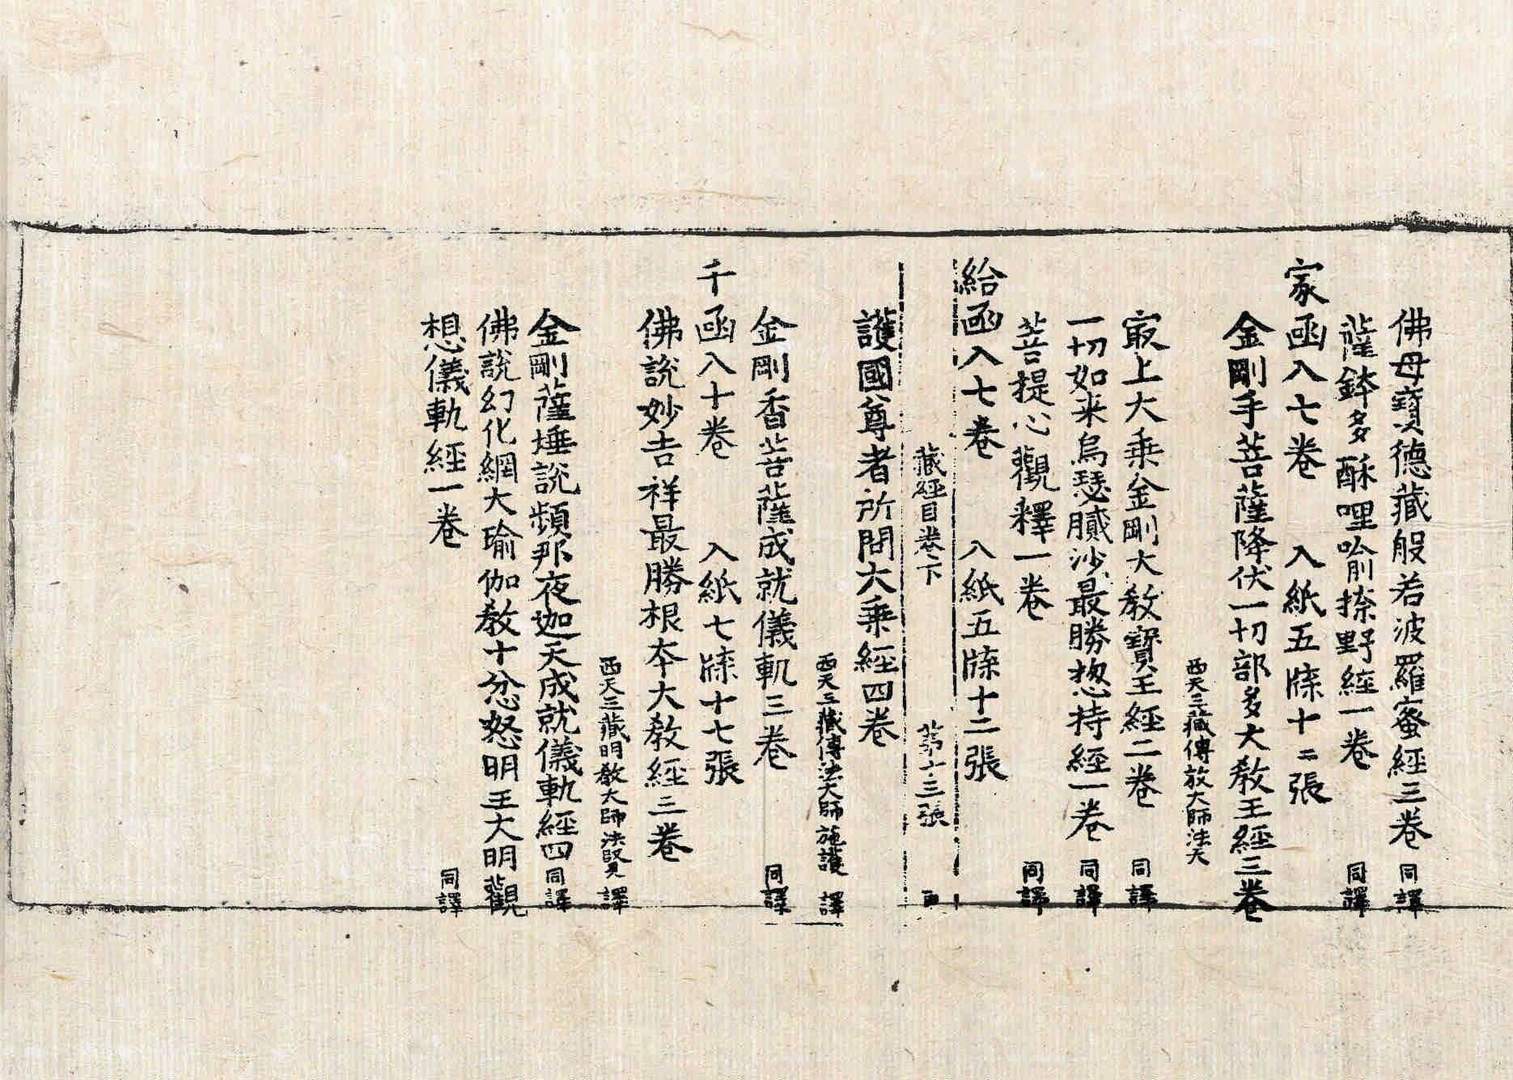 佛母寶德藏般若波羅蜜經三卷 同譯
薩鉢多酥哩喻捺野經一卷 同譯
家函入七卷 入紙五牒十二張
金剛手菩薩降伏一切部多大教王經三卷
西天三藏傳教大師法天
㝡上大乘金剛大教寶王經二卷 同譯
一切如来烏瑟膩沙最勝惣持經一卷 同譯
菩提心觀釋一卷 同譯
給函入七卷 入紙五牒十二張
藏經目卷下 第十三張
護國尊者所問大乘經四卷
西天三藏傳法大師施護 譯
金剛香菩薩成就儀軌三卷 同譯
千函入十卷 入紙七牒十七張
佛說妙吉祥最勝根本大教經三卷
西天三藏明教大師法賢 譯
金剛薩埵說頻那夜迦天成就儀軌經四 同譯
佛說幻化網大瑜伽教十忿怒明王大明觀
想儀軌經一卷 同譯